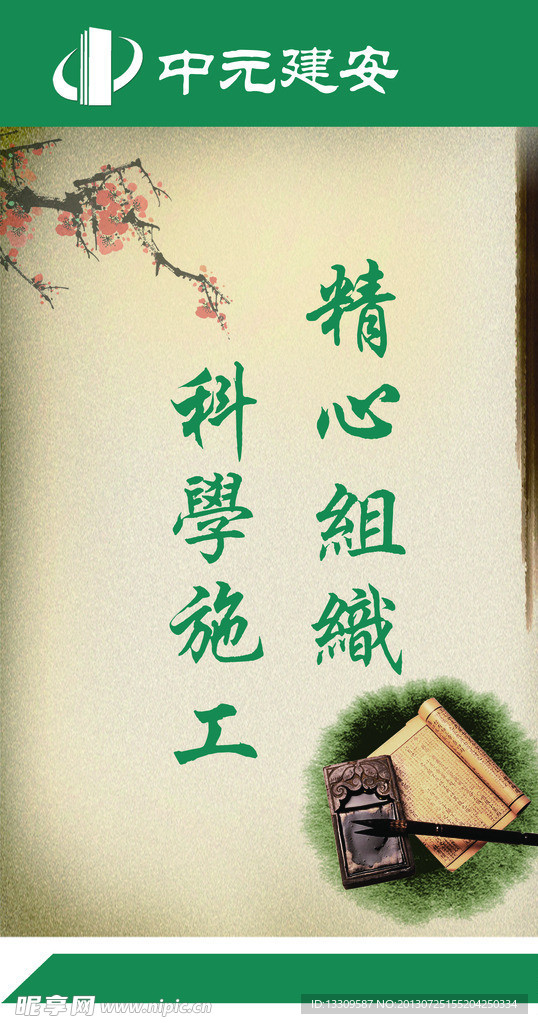 中元建安
精心組織
科學施工
昵享网 www.nipic.cn
ID:13309587 NO:20130725155204250334